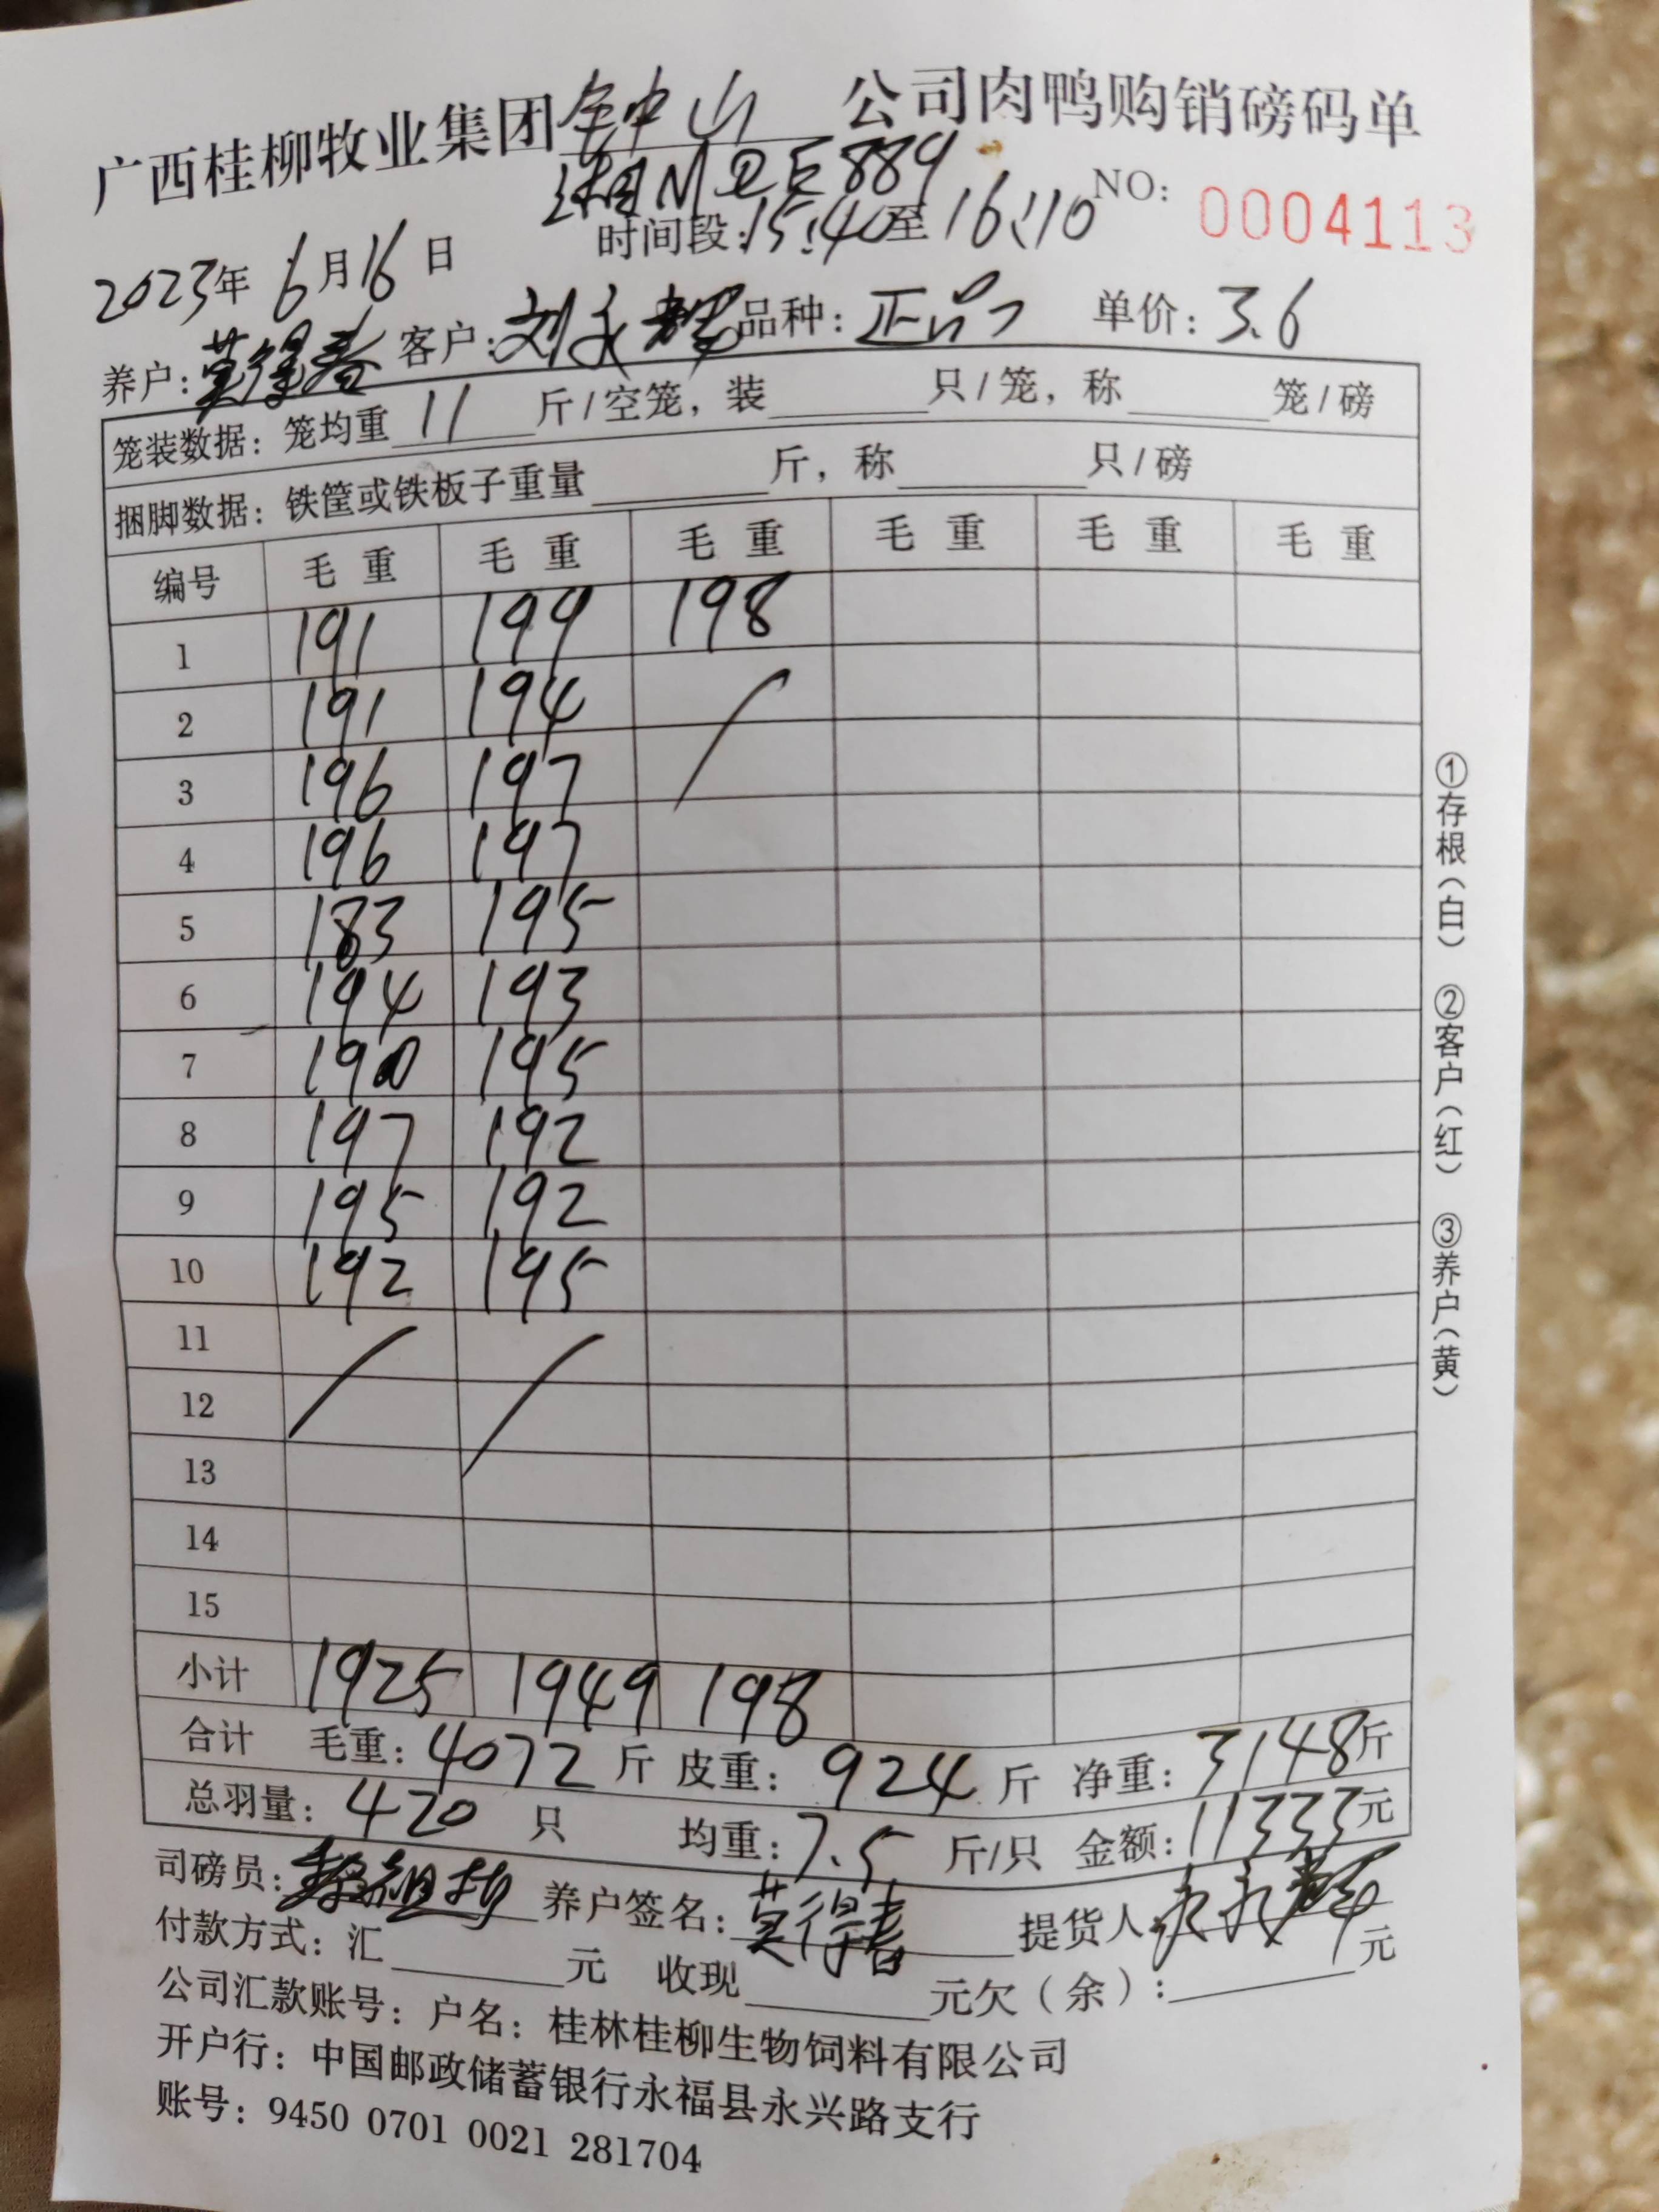 广西桂柳牧业集团钟山 公司肉鸭购销磅码单
湘M 889
NO: 0004113
2023年 6月16日 时间段:15:40至16:10
养户:莫得春 客户:刘永辉 品种:正品 单价:3.6
笼装数据:笼均重 11 斤/空笼,装 只/笼,称 笼/磅
捆脚数据:铁筐或铁板子重量 斤,称 只/磅
编号 毛重 毛重 毛重 毛重 毛重 毛重
1 191 199 198
2 191 194
3 196 197
4 196 197
5 183 195
6 194 193
7 190 195
8 197 192
9 195 192
10 192 195
11
12
13
14
15
小计 1925 1949 198
合计 毛重:4072 斤 皮重:924 斤 净重:3148斤
总羽量:420 只 均重:7.5 斤/只 金额:11333元
司磅员: 养户签名:莫得春 提货人
付款方式:汇 元 收现 元欠(余): 元
公司汇款账号:户名:桂林桂柳生物饲料有限公司
开户行:中国邮政储蓄银行永福县永兴路支行
账号:9450 0701 0021 281704
①存根(白) ②客户(红) ③养户(黄)